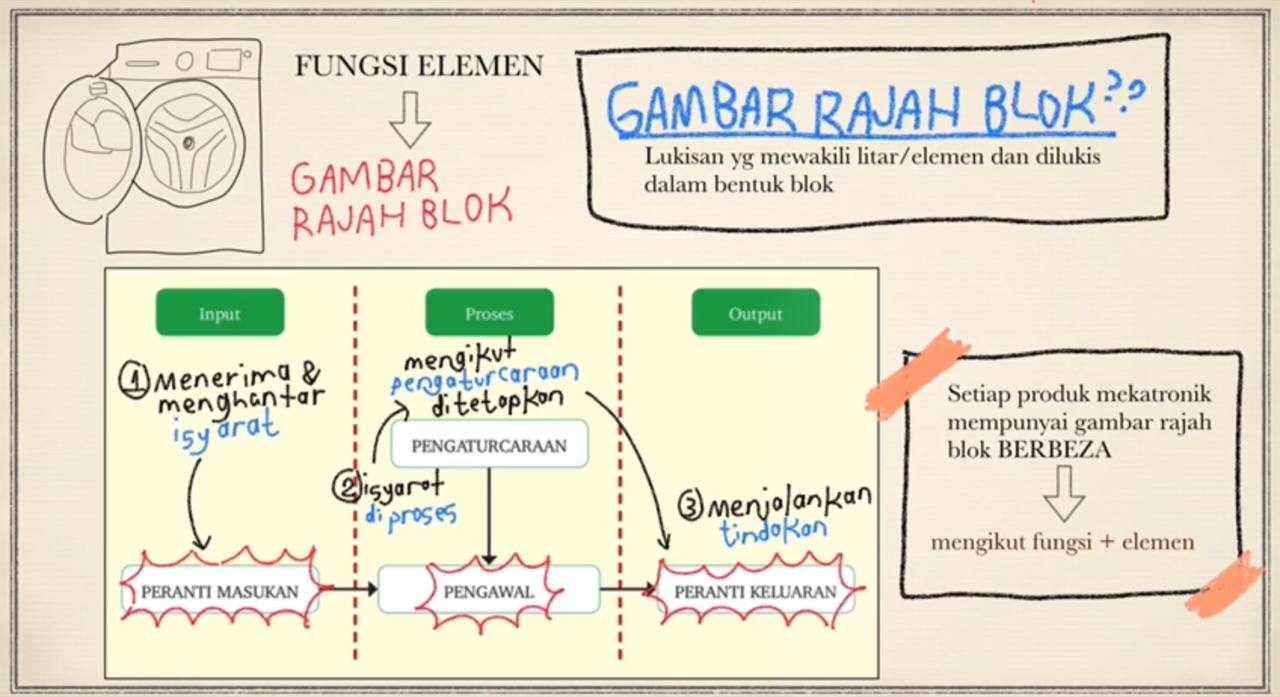 FUNGSI ELEMEN
GAMBAR
RAJAH BLOK
GAMBAR RAJAH BLOK??
Lukisan yg mewakili litar/elemen dan dilukis
dalam bentuk blok
Input
Proses
Output
1 Menerima &
menghantar
isyarat
mengikut
pengaturcaraan
ditetapkan
PENGATURCARAAN
2 isyarat
diproses
3 menjalankan
tindakan
PERANTI MASUKAN
PENGAWAL
PERANTI KELUARAN
Setiap produk mekatronik
mempunyai gambar rajah
blok BERBEZA
mengikut fungsi + elemen